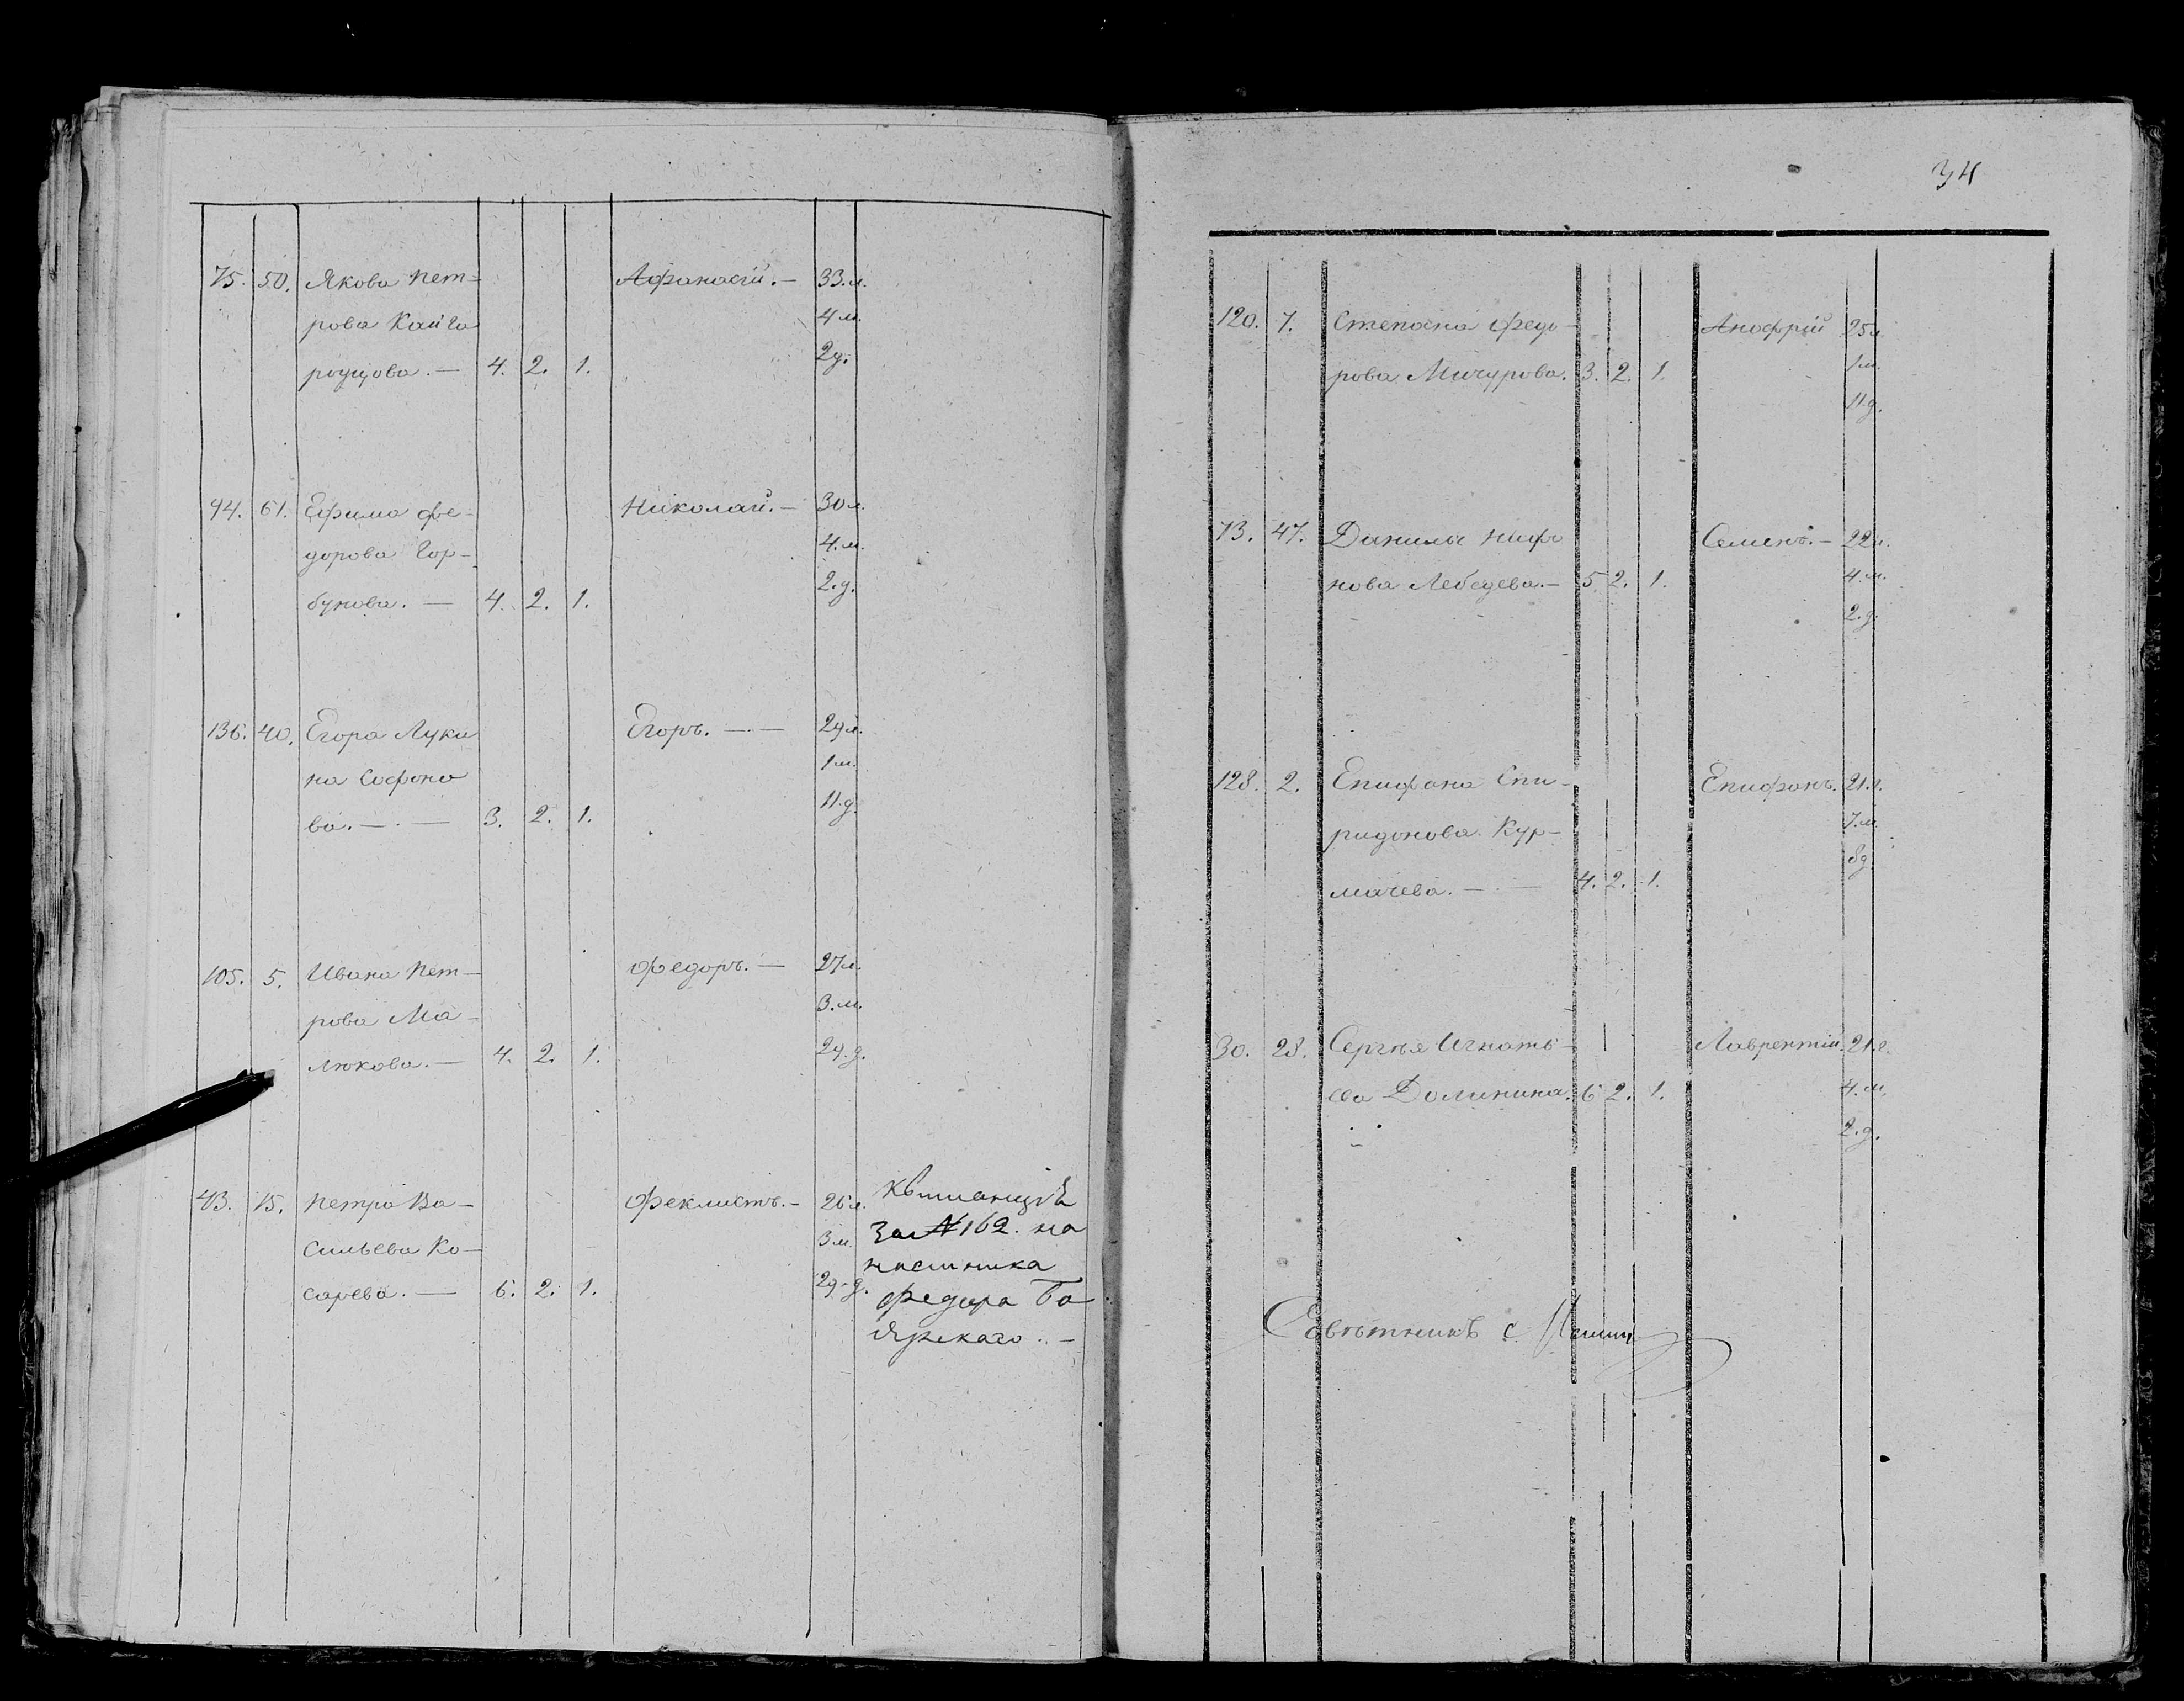 75. 50. Якова Пет-
рова Кайго
родцова. — 4. 2. 1. Афанасій. — 33.л.
4 м.
2 д.
94. 61. Ефима Фе-
дорова Гор-
бунова. — 4. 2. 1. Николай. — 30 л.
4. м.
2. д.
136. 40. Егора Луки
на Софоно
ва. — . — 3. 2. 1. Егоръ. — . — 29 л.
1 м.
11. д.
105. 5. Ивана Пет-
рова Ма-
люкова. — 4. 2. 1. Федоръ. — 27 л.
3. м.
29. д.
43. 15. Петра Ва-
сильева Ко-
сарева. — 6. 2. 1. Феклистъ. — 26 л.
3 м.
29. д.
Квитанція
за № 162. на
наемника
Федора Бо
ярскаго. —
34
120. 7. Степана Федо-
рова Мичурова. 3. 2. 1. Анофрій 25 л.
1 м.
11. д.
73. 47. Данилы Нифо
нова Лебедева. — 5 2. 1. Семенъ. — 22 л.
4. м.
2. д.
128. 2. Епифана Спи-
ридонова Кур-
мачева. — . — 4. 2. 1. Епифанъ. 21. г.
7. м.
8 д
30. 28. Сергѣя Игнать-
ева Долинина. 6 2. 1. Лаврентій. 21. г.
4. м.
2. д.
Совѣтникъ